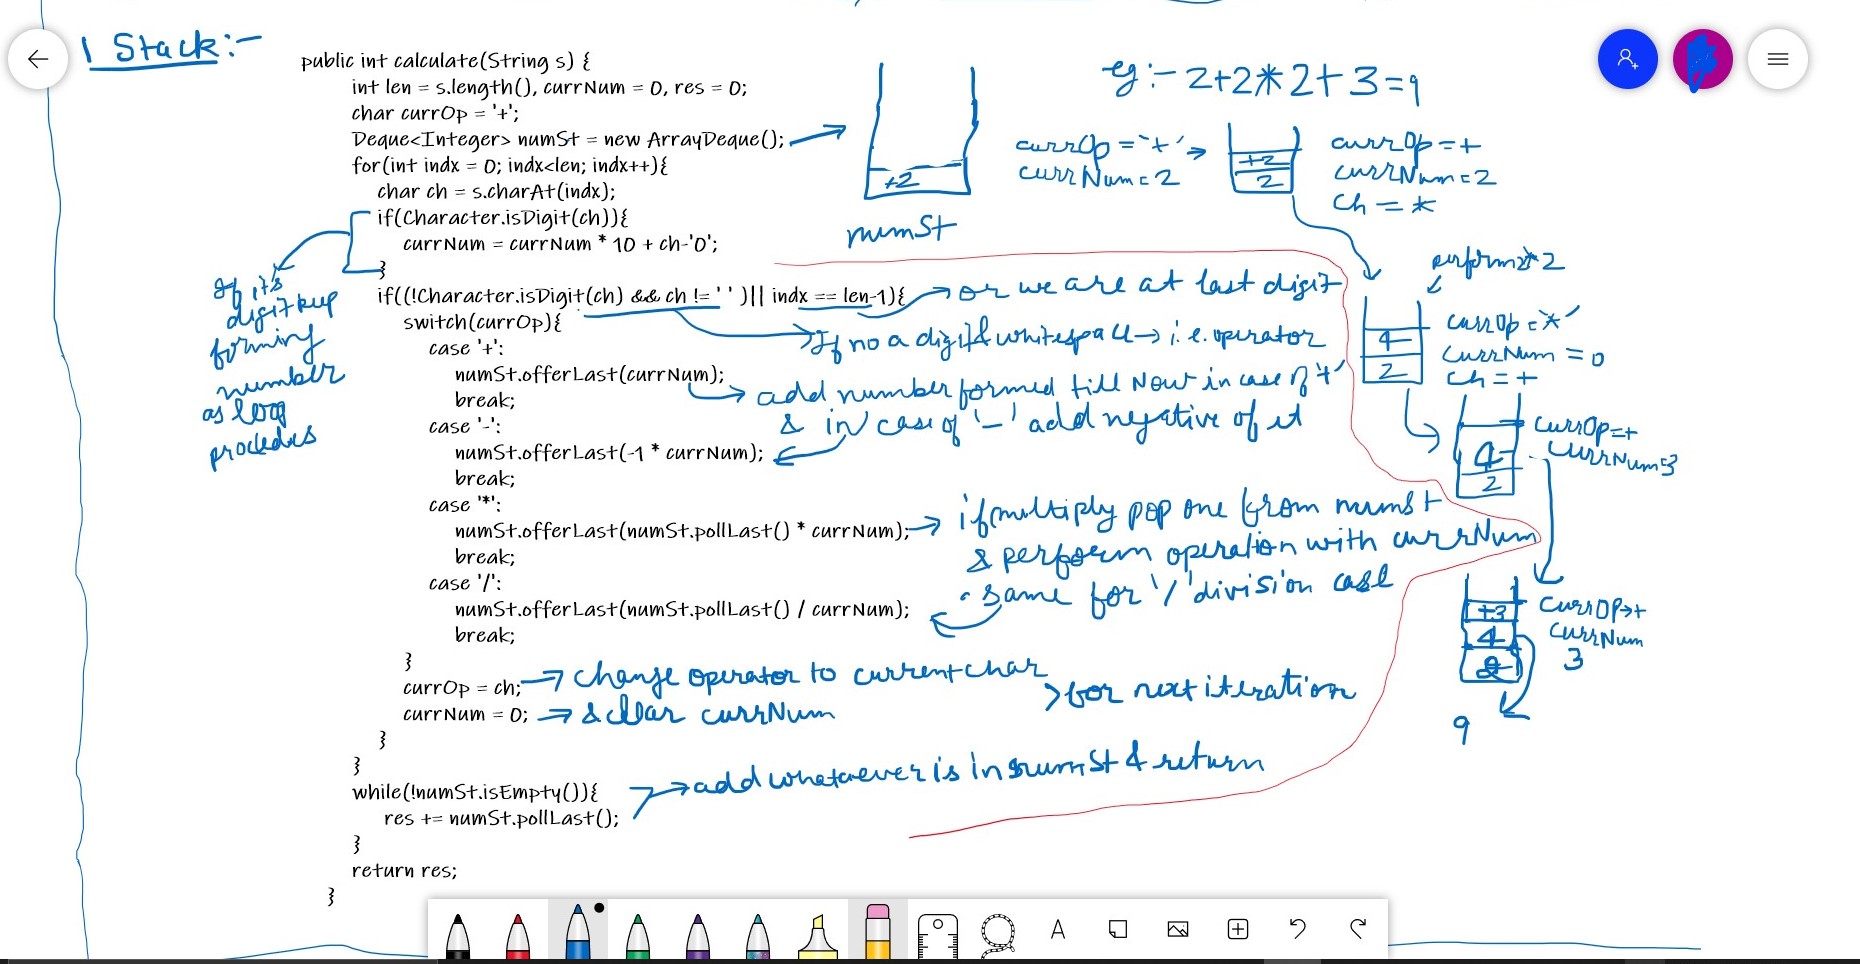 1 Stack:-
public int calculate(String s) {
int len = s.length(), currNum = 0, res = 0;
char currOp = '+';
Deque<Integer> numSt = new ArrayDeque();
for(int indx = 0; indx<len; indx++){
char ch = s.charAt(indx);
if(Character.isDigit(ch)){
currNum = currNum * 10 + ch-'0';
}
if((!Character.isDigit(ch) && ch != ' ' )|| indx == len-1){
switch(currOp){
case '+':
numSt.offerLast(currNum);
break;
case '-':
numSt.offerLast(-1 * currNum);
break;
case '*':
numSt.offerLast(numSt.pollLast() * currNum);
break;
case '/':
numSt.offerLast(numSt.pollLast() / currNum);
break;
}
currOp = ch;
currNum = 0;
}
}
while(!numSt.isEmpty()){
res += numSt.pollLast();
}
return res;
}
If it's
digit keep
forming
number
as loop
+2
numSt
→ or we are at last digit
→ If no a digit & whitespace → i.e. operator
→ add number formed till Now in case of '+'
& in case of '-' add negative of it
→ if multiply pop one from numst
& perform operation with currNum
same for '/' division case
→ change operator to current char
→ & clear currNum
> for next iteration
→ add whatever is in numSt & return
eg:- 2+2*2+3=9
currOp = '+' →
currNum = 2
+2
2
currOp = +
currNum = 2
ch = *
perform 2*2
4
2
currOp = '*'
currNum = 0
ch = +
4
2
currOp=+
currNum=3
+3
4
2
currOp→+
currNum
3
9
A